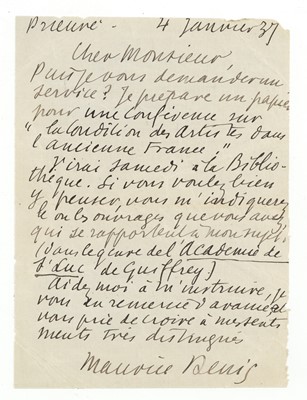 Prieuré - 4 Janvier 37
Cher Monsieur
Puis je vous demander un
service? Je prépare un papier
pour une conférence sur
"la Condition des Artistes dans
l'ancienne France."
J'irai samedi à la Biblio-
thèque. Si vous voulez bien
y penser, vous m'indiquerez
le ou les ouvrages que vous avez
qui se rapportent à mon sujet
(Dans le genre de l'Académie de
St Luc de Guiffrey.)
Aidez moi à m'instruire, je
vous en remercie d'avance et
vous prie de croire à mes senti
ments très distingués
Maurice Denis